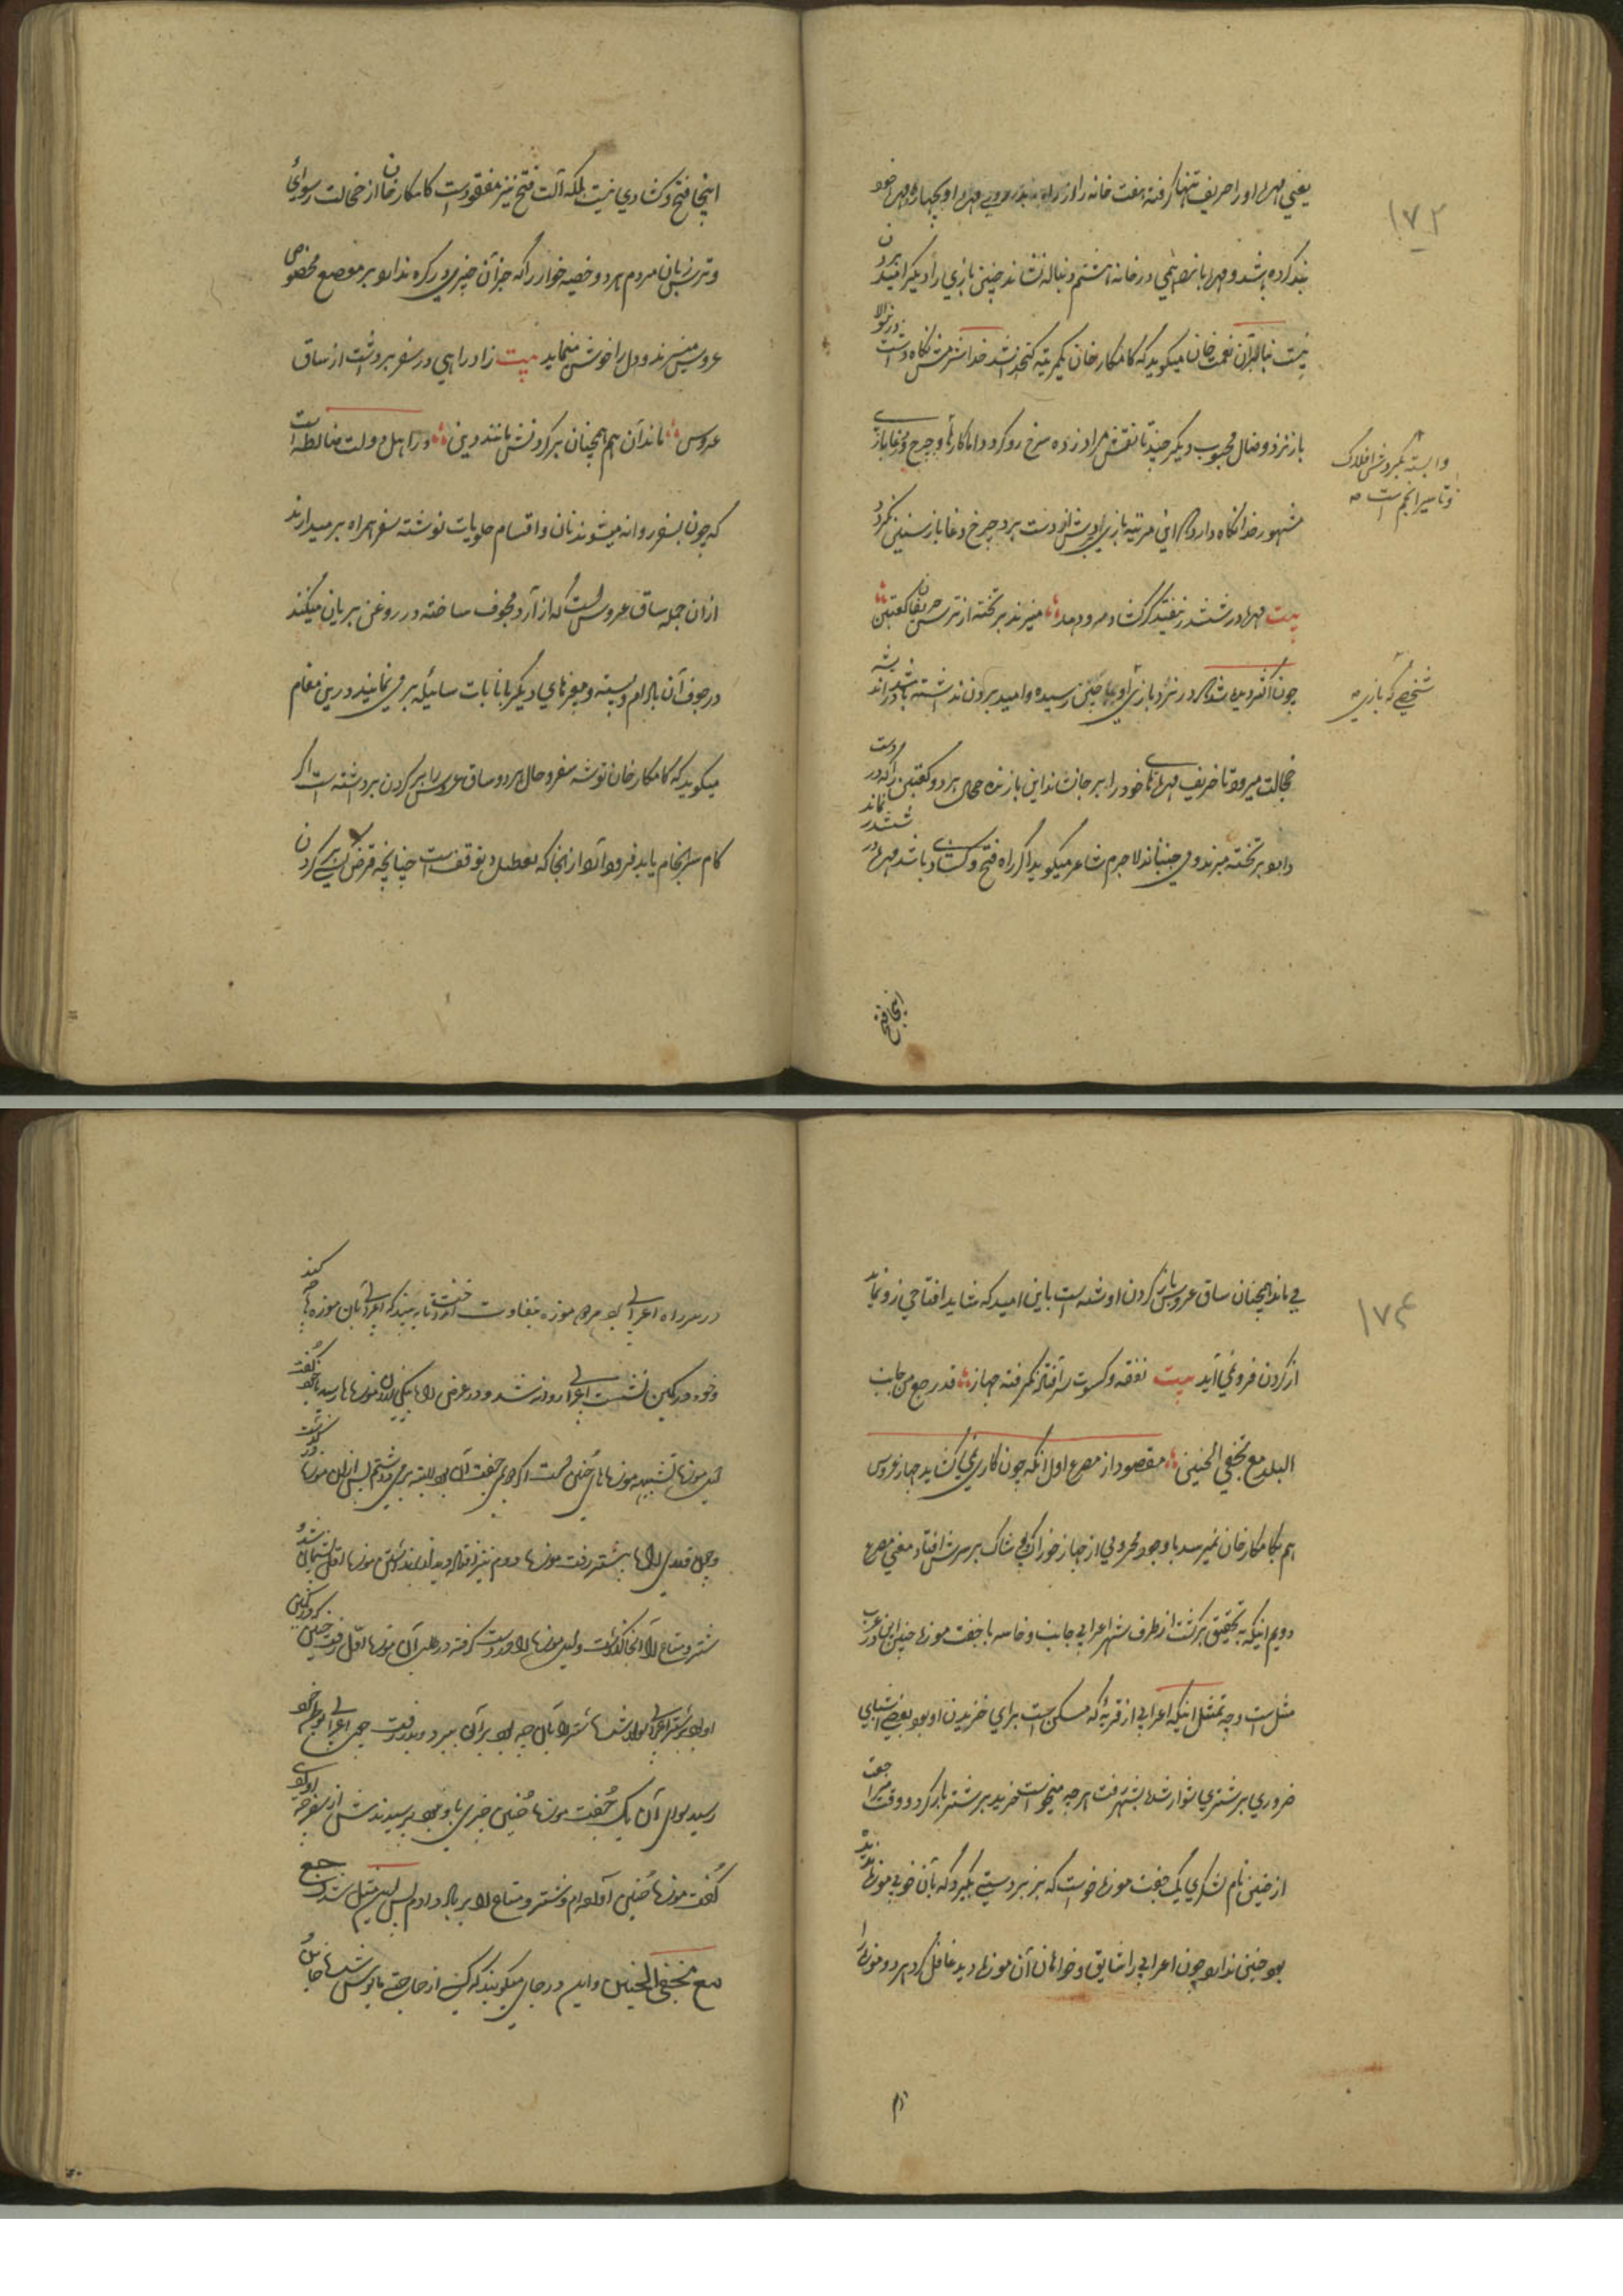 ۱۷۲
یعنی مهرهٔ او را حریف تنها گرفته هفت خانه را از راه
بند کرده باشد و مهرهٔ بازنده همی در خانه هشتم دنباله نشاند چنین بازی را دیگر امید بردن
نیست بنابران نعمت خان میگوید که کامکار خان یکمرتبه کتخدا نشد خدا شرمش نگاه داشت
باز نرد وصال محبوب دیگر چند تا نقش مراد زده سرخ رو گردد اما کارها و چرخ دغاباز
وابسته بگردش افلاک
و تاثیر انجم است
مشهور خدا نگاه دارد که این مرتبه بازی پیش او دست برد چرخ دغا باز سنینی نکرد
بیت مهره در ششدر نیفتد گر گشاد مرد دهد میزند بر تخته از ترس حریفان کعبتین
چون اکثر دیده شد که در نرد بازی او بجا چنین رسیده و امید بردن نداشته باشد
شخصی که بازی
خجالت میرود تا حریف مهرهای خود را بر جا نشاند این بازنده همان هر دو کعبتین را که در دست
دارد بر تخته میزند و می جنباند لاجرم شاعر میگوید اگر راه فتح و گشادی باشد مهره در ششدر نماند
اینجا فتح
اینجا فتح و گشادی نیست بلکه آلت فتح نیز مفقود است کامکار خان از خجالت رسوائی
و ترس زبان مردم هر دو خصیه خود را که جز آن چیزی در گره ندارد بر موضع مخصوص
عروس میزند و دل را خوش مینماید بیت زاد راهی در سفر برداشت از ساق
عروس ماند آن هم همچنان بر گردنش مانند دین در اهل ولت ضابطه است
که چون بسفر روانه میشوند نان و اقسام حلویات توشه سفر همراه بر میدارند
از ان جمله ساق عروس است که از آرد مجوف ساخته در روغن بریان میکنند
در جوف آن بادام و پسته و مغزهای دیگر با نبات سائیده پر می نمایند درین مقام
میگوید که کامکار خان توشه سفر و حال هر دو ساق عروس را بر گردن برداشته است اگر
کام سرانجام یابد فرود آرد از انجا که معطل و توقف است چنانچه قرض کسی بر گردن
۱۷۴
می ماند همچنان ساق عروس بار گردن او شده است باین امید که شاید افتتاحی رو نماید
از گردن فرو نمی آید بیت نفقه و کسوت سر آفتد نگرفته جهاز قد رجع من جانب
البلد مع بخفی الحنین مقصود از مصرع اول آنکه چون کاری نمی گشاید جهاز عروس
هم بکامکار خان نمیرسد با وجود محرومی از جهاز خوراک پوشاک بر سرش افتاد معنی مصرع
دویم اینکه به تحقیق برگشت از طرف شهر اعرابی خایب و خاسر با جفت موزه حنین این در عرب
مثل است وجه تمثل اینکه اعرابی از قریهٔ که مسکن داشت برای خریدن او بود بعضی اشیای
ضروری بر شتری سوار شده بشهر رفت هرچه میخواست خرید بر شتر بار کرد و وقت مراجعت
از حنین نام لشکری یک جفت موزه خواست که بزبردستی بگیرد که بآن خوبی موزه ندیده
بود حنین نداد و چون اعرابی را شایق و خواهان آن موزه دید غافل کرد هر دو موزه را
در
در سر راه اعرابی یک موزه بتفاوت انداخت تا ببیند که اعرابی بآن موزه ها چه کند
و خود در کمین نشست اعرابی روانه شد و در عرض راه بیکی ازان موزه ها رسید با خود گفت
این موزه شبیه موزه های حنین است اگر هر دو جفت آن بود البته بر می داشتم پس ازین موزه در گذشت
و چون قدری راه پیشتر رفت موزه دوم نیز افتاده دید از نگذاشتن موزه اول پشیمان شد و
شتر و متاع را آنجا گذاشت و این موزه را در دست گرفته در طلب آن موزه اول رفت حنین که در کمین
او بود بر شتر اعرابی سوار شده شتر را با آن چه بود بر آن ببرد و بدر رفت چون اعرابی بموطن خود
رسید سوای آن یک جفت موزه حنین چیزی با و نبود پرسیدندش از سفر چه آوردی
گفت موزه حنین آورده ام و شتر و متاع را بر باد دادم پس این مثل شد رجع
مع بخفی الحنین و این در جای میگویند که کسی از حاجتی مایوس شده خایب